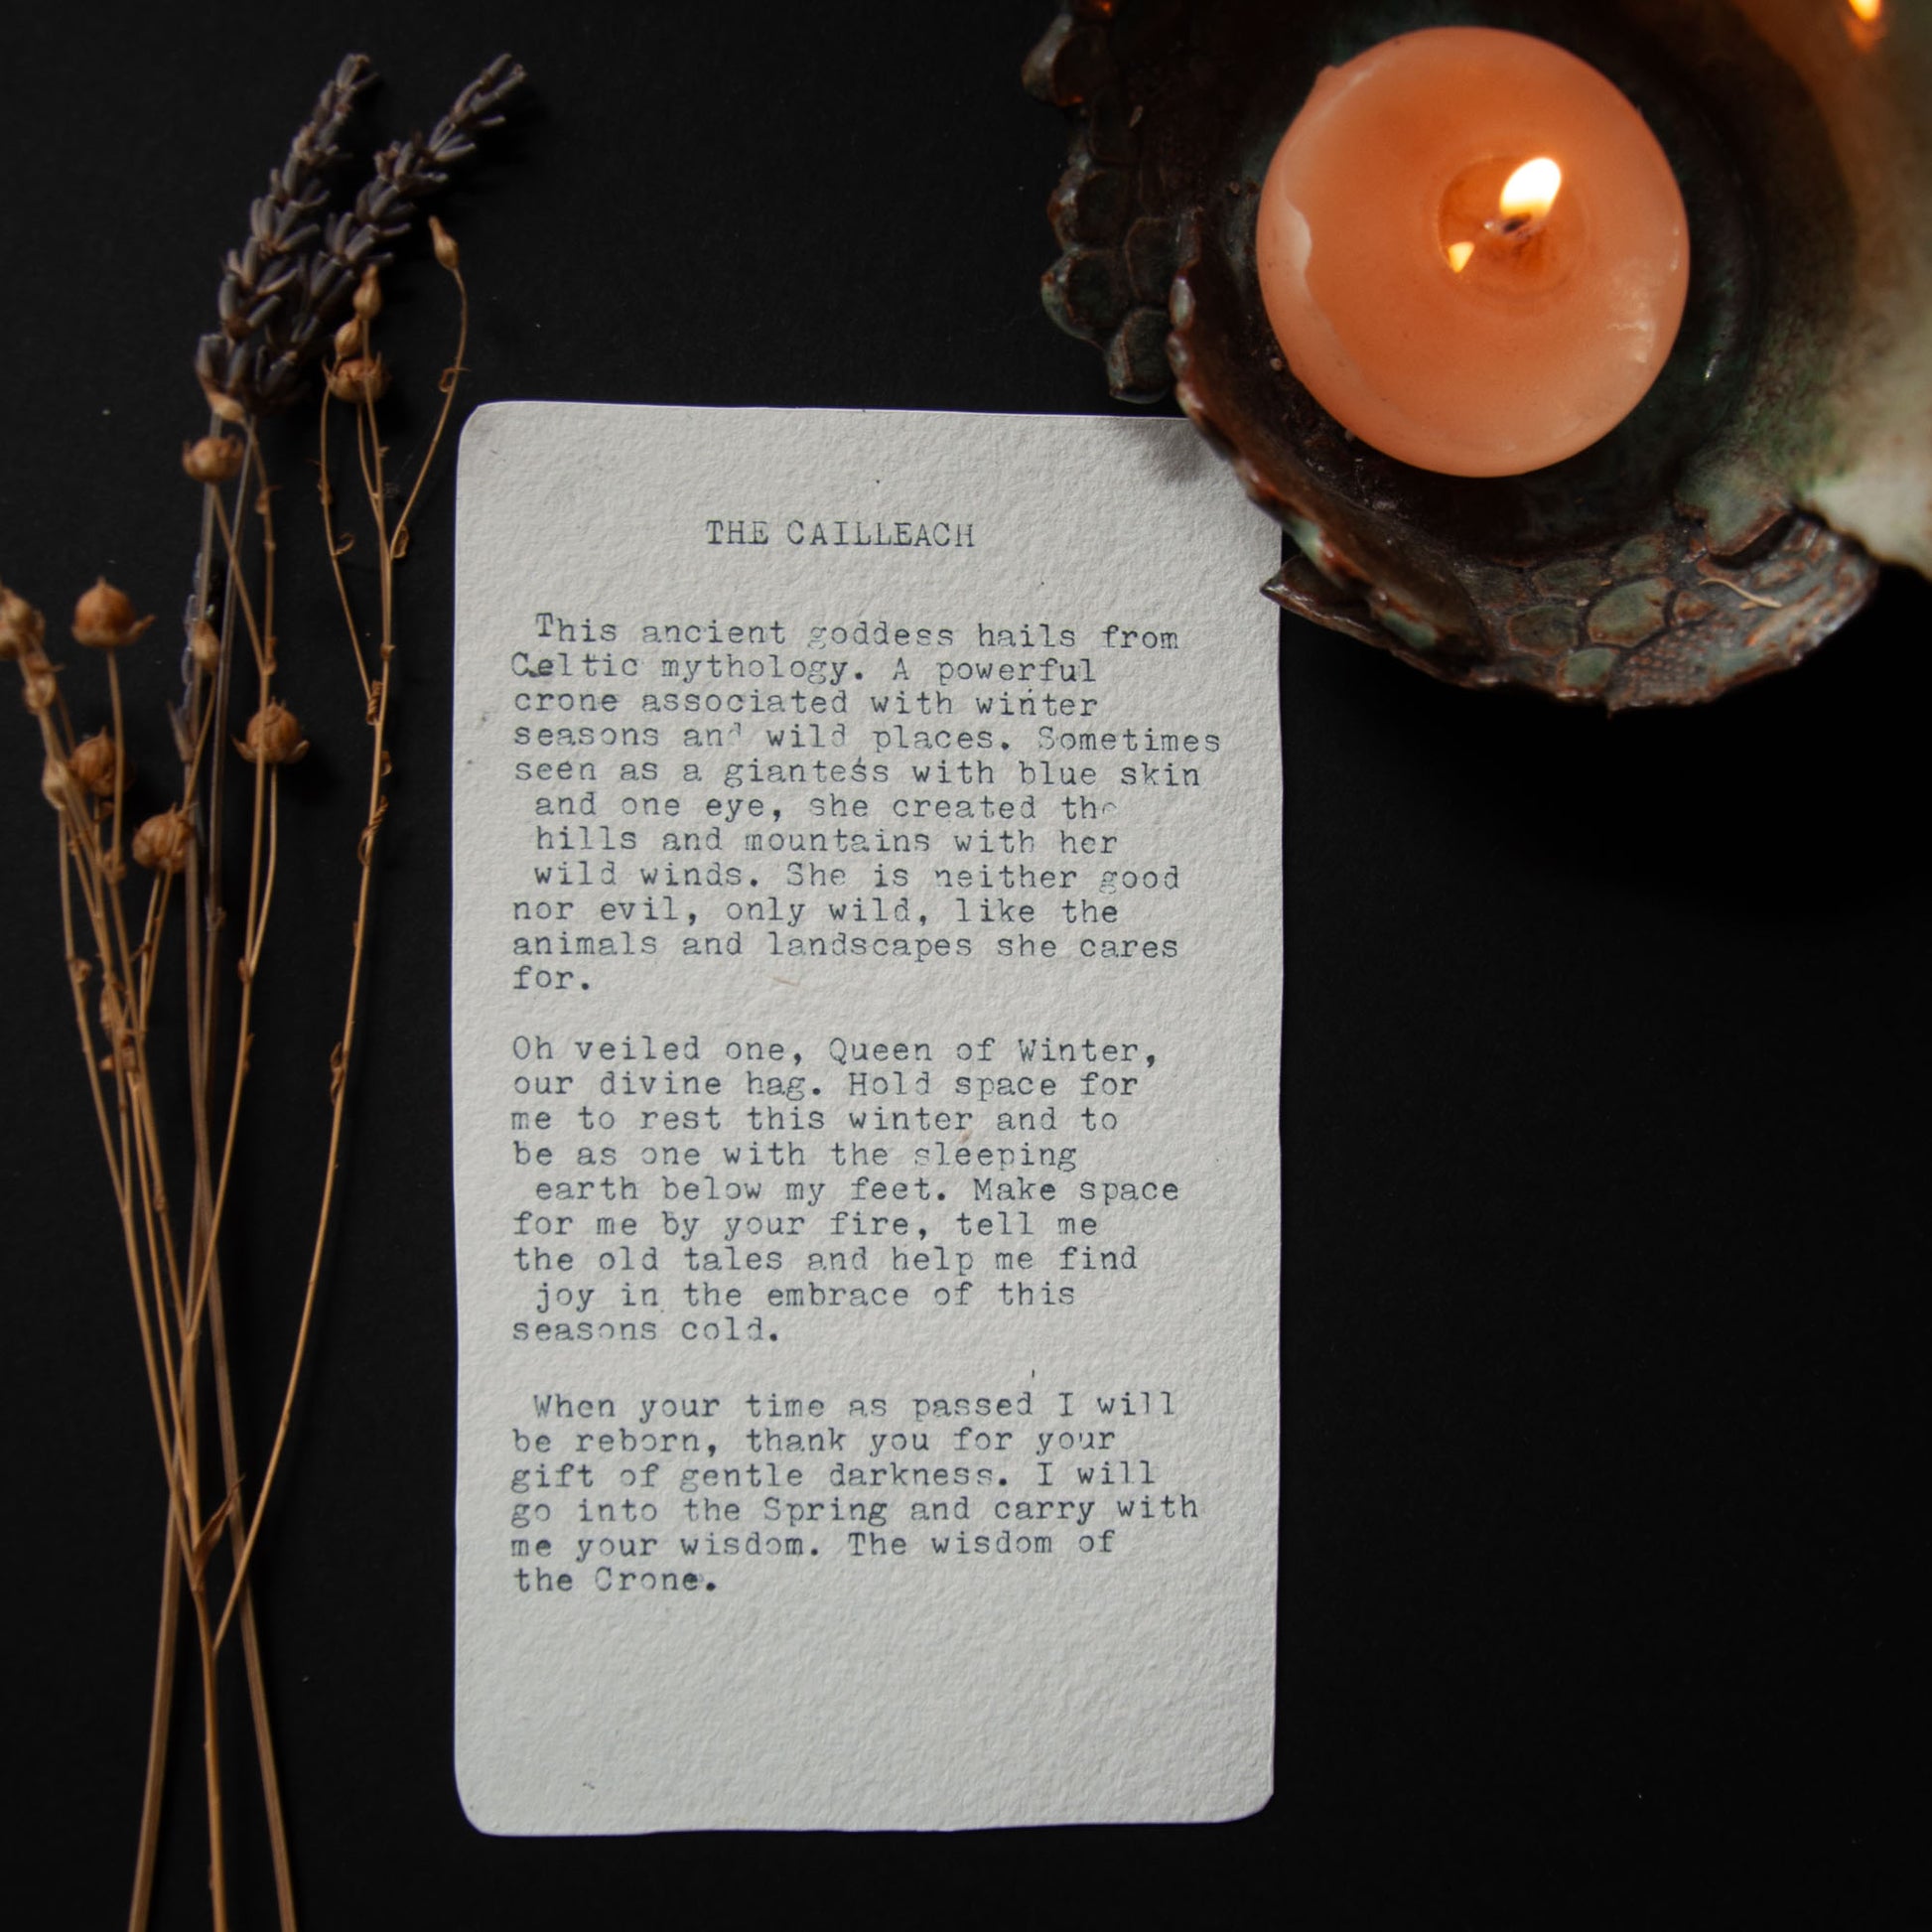 THE CAILLEACH
This ancient goddess hails from
Celtic mythology. A powerful
crone associated with winter
seasons and wild places. Sometimes
seen as a giantess with blue skin
and one eye, she created the
hills and mountains with her
wild winds. She is neither good
nor evil, only wild, like the
animals and landscapes she cares
for.
Oh veiled one, Queen of Winter,
our divine hag. Hold space for
me to rest this winter and to
be as one with the sleeping
earth below my feet. Make space
for me by your fire, tell me
the old tales and help me find
joy in the embrace of this
seasons cold.
When your time as passed I will
be reborn, thank you for your
gift of gentle darkness. I will
go into the Spring and carry with
me your wisdom. The wisdom of
the Crone.